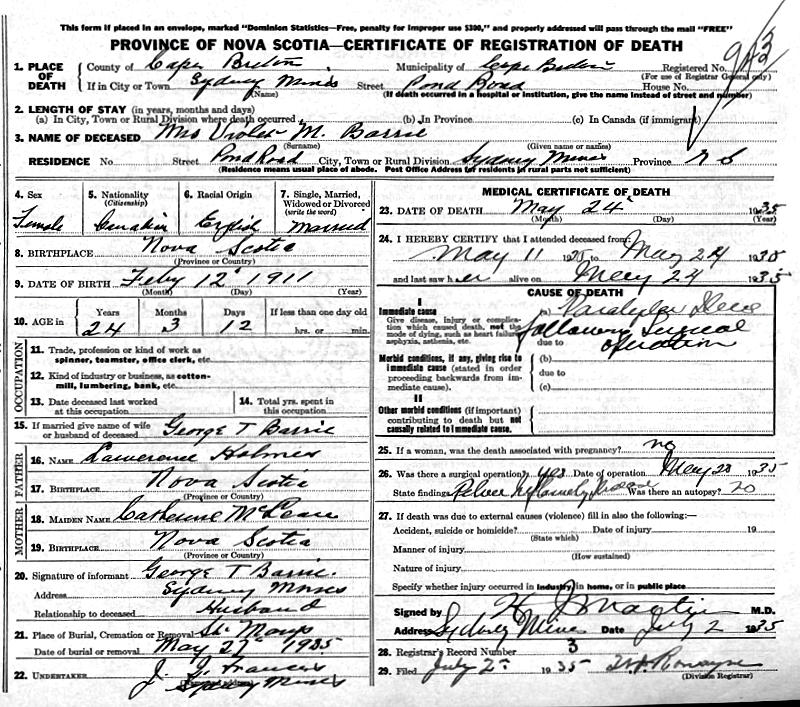 This form if placed in an envelope, marked "Dominion Statistics—Free, penalty for improper use $300," and properly addressed will pass through the mail "FREE"
PROVINCE OF NOVA SCOTIA—CERTIFICATE OF REGISTRATION OF DEATH
1. PLACE OF DEATH County of Cape Breton Municipality of Cape Breton Registered No.
(For use of Registrar General only)
If in City or Town Sydney Mines Street Pond Road House No.
(Name) (If death occurred in a hospital or institution, give the name instead of street and number)
2. LENGTH OF STAY (in years, months and days)
(a) In City, Town or Rural Division where death occurred (b) In Province (c) In Canada (if immigrant)
3. NAME OF DECEASED Mrs Violet M. Barrie
(Surname) (Given name or names)
RESIDENCE No Street Pond Road City, Town or Rural Division Sydney Mines Province N S
(Residence means usual place of abode. Post Office Address for residents in rural parts not sufficient)
4. Sex Female
5. Nationality (Citizenship) Canadian
6. Racial Origin English
7. Single, Married, Widowed or Divorced (write the word) Married
8. BIRTHPLACE Nova Scotia
(Province or Country)
9. DATE OF BIRTH Feby 12" 1911
(Month) (Day) (Year)
10. AGE in Years Months Days If less than one day old
24 3 12 hrs. or min.
OCCUPATION
11. Trade, profession or kind of work as spinner, teamster, office clerk, etc.
12. Kind of industry or business, as cotton-mill, lumbering, bank, etc.
13. Date deceased last worked at this occupation
14. Total yrs. spent in this occupation
15. If married give name of wife or husband of deceased George T Barrie
FATHER
16. NAME Lawerence Holmes
17. BIRTHPLACE Nova Scotia
(Province or Country)
MOTHER
18. MAIDEN NAME Catherine McLean
19. BIRTHPLACE Nova Scotia
(Province or Country)
20. Signature of informant George T Barrie.
Address Sydney Mines
Relationship to deceased Husband
21. Place of Burial, Cremation or Removal St Marys
Date of burial or removal May 27" 1935
22. UNDERTAKER J. J. Francis
(Name and address) Sydney Mines
MEDICAL CERTIFICATE OF DEATH
23. DATE OF DEATH May 24" 1935
(Month) (Day) (Year)
24. I HEREBY CERTIFY that I attended deceased from:
May 11 1935 to May 24 1935
and last saw her alive on May 24 1935
CAUSE OF DEATH
I
Immediate cause (a) Paralytic Ileus
Give disease, injury or complication which caused death, not the mode of dying, such as heart failure, asphyxia, asthenia, etc.
following surgical
due to operation
Morbid conditions, if any, giving rise to immediate cause (stated in order proceeding backwards from immediate cause). (b)
due to
(c)
II
Other morbid conditions (if important) contributing to death but not causally related to immediate cause.
25. If a woman, was the death associated with pregnancy? no
26. Was there a surgical operation? yes Date of operation May 20 1935
State findings Pelvic Was there an autopsy? no
27. If death was due to external causes (violence) fill in also the following:—
Accident, suicide or homicide? Date of injury 19
(State which)
Manner of injury
(How sustained)
Nature of injury
Specify whether injury occurred in industry, in home, or in public place
Signed by Martin M.D.
Address Sydney Mines Date July 2 1935
28. Registrar's Record Number 3
29. Filed July 2" 1935
(Division Registrar)